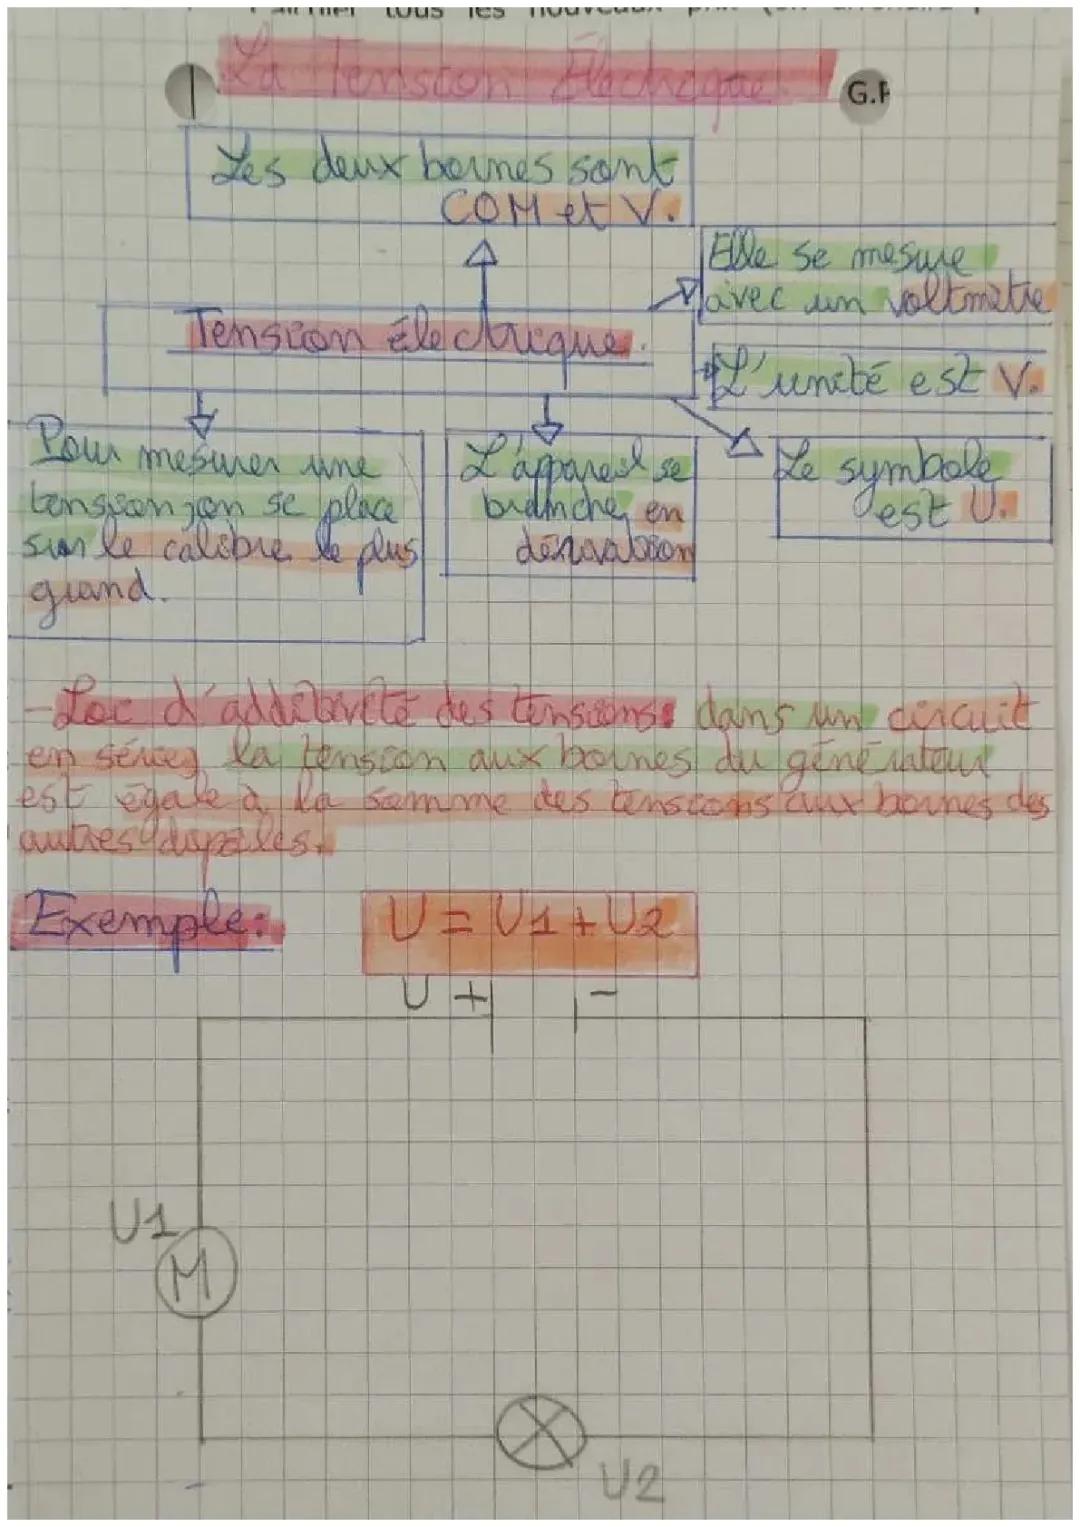 tous les nouveaux
La Tension Électrique
G.F
Les deux bornes sont
COM et V.
Elle se mesure
avec un voltmètre
Tension électrique.
L'unité est V.
Pour mesurer une
tension, on se place
sur le calibre le plus
grand.
L'appareil se
branche en
dérivation
Le symbole
est U.
-Loi d'additivité des tensions: dans un circuit
en série, la tension aux bornes du générateur
est égale à la somme des tensions aux bornes des
autres dipôles.
Exemple:
U = U1 + U2
U + -
U1
M
U2